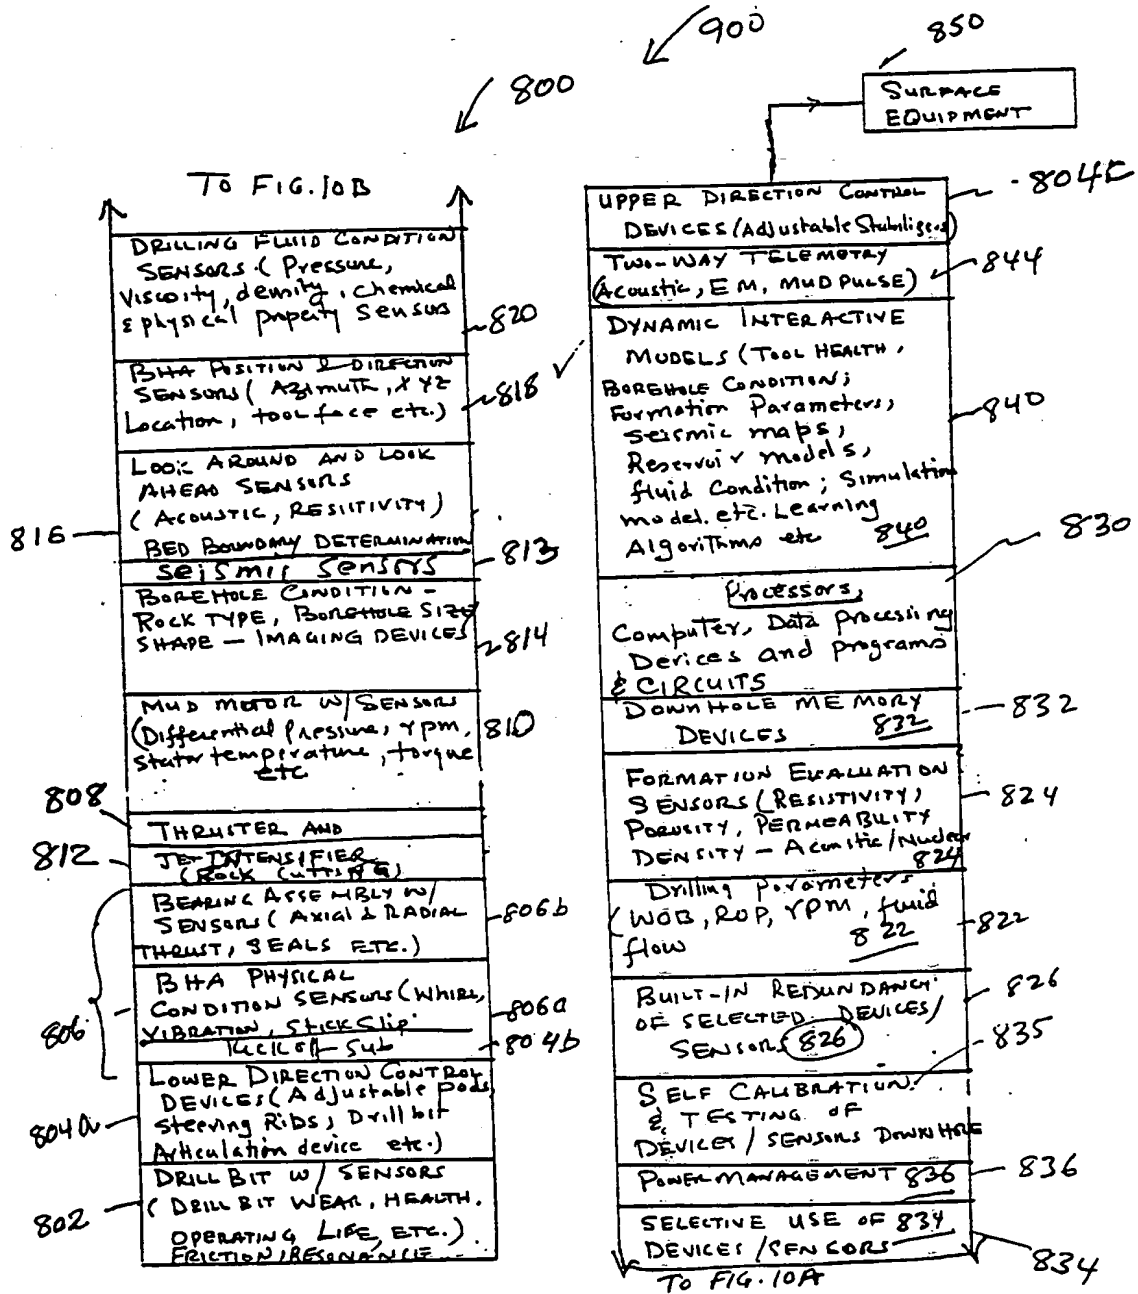 900
850
800
SURFACE
EQUIPMENT
TO FIG. 10B
DRILLING FLUID CONDITION
SENSORS (Pressure,
Viscosity, density, chemical
& physical property sensors
820
BHA POSITION & DIRECTION
SENSORS (Azimuth, XYZ
Location, tool face etc.)
818
LOOK AROUND AND LOOK
AHEAD SENSORS
(ACOUSTIC, RESISTIVITY)
BED BOUNDARY DETERMINATION
816
Seismic Sensors
813
BOREHOLE CONDITION -
ROCK TYPE, BOREHOLE SIZE
SHAPE - IMAGING DEVICES
814
MUD MOTOR W/ SENSORS
(Differential Pressure, rpm,
stator temperature, torque
etc
810
808
THRUSTER AND
812
JET INTENSIFIER
(ROCK CUTTING)
BEARING ASSEMBLY W/
SENSORS (AXIAL & RADIAL
THRUST, SEALS ETC.)
806b
BHA PHYSICAL
CONDITION SENSORS (WHIRL,
VIBRATION, Stick Slip
806
806a
Kick off Sub
804b
LOWER DIRECTION CONTROL
DEVICES (Adjustable pads,
Steering Ribs, Drill bit
Articulation device etc.)
804a
DRILL BIT W/ SENSORS
(DRILL BIT WEAR, HEALTH.
OPERATING LIFE, ETC.)
FRICTION, RESONANCE
802
UPPER DIRECTION CONTROL
DEVICES (Adjustable Stabilizers)
804C
TWO-WAY TELEMETRY
(Acoustic, EM, MUD PULSE)
844
DYNAMIC INTERACTIVE
MODELS (TOOL HEALTH,
BOREHOLE CONDITION;
Formation Parameters,
Seismic maps,
Reservoir models,
fluid Condition; Simulation
model. etc. Learning
Algorithms etc 840
840
Processors,
Computer, Data processing
Devices and programs
& CIRCUITS
830
DOWNHOLE MEMORY
DEVICES 832
832
FORMATION EVALUATION
SENSORS (RESISTIVITY,
POROSITY, PERMEABILITY
DENSITY - Acoustic/Nuclear
824
824
Drilling parameters
(WOB, ROP, rpm, fluid
flow 822
822
BUILT-IN REDUNDANCY
OF SELECTED DEVICES/
SENSORS 826
826
SELF CALIBRATION
& TESTING OF
DEVICES/SENSORS DOWNHOLE
835
POWER MANAGEMENT 836
836
SELECTIVE USE OF 834
DEVICES/SENSORS
834
TO FIG. 10A